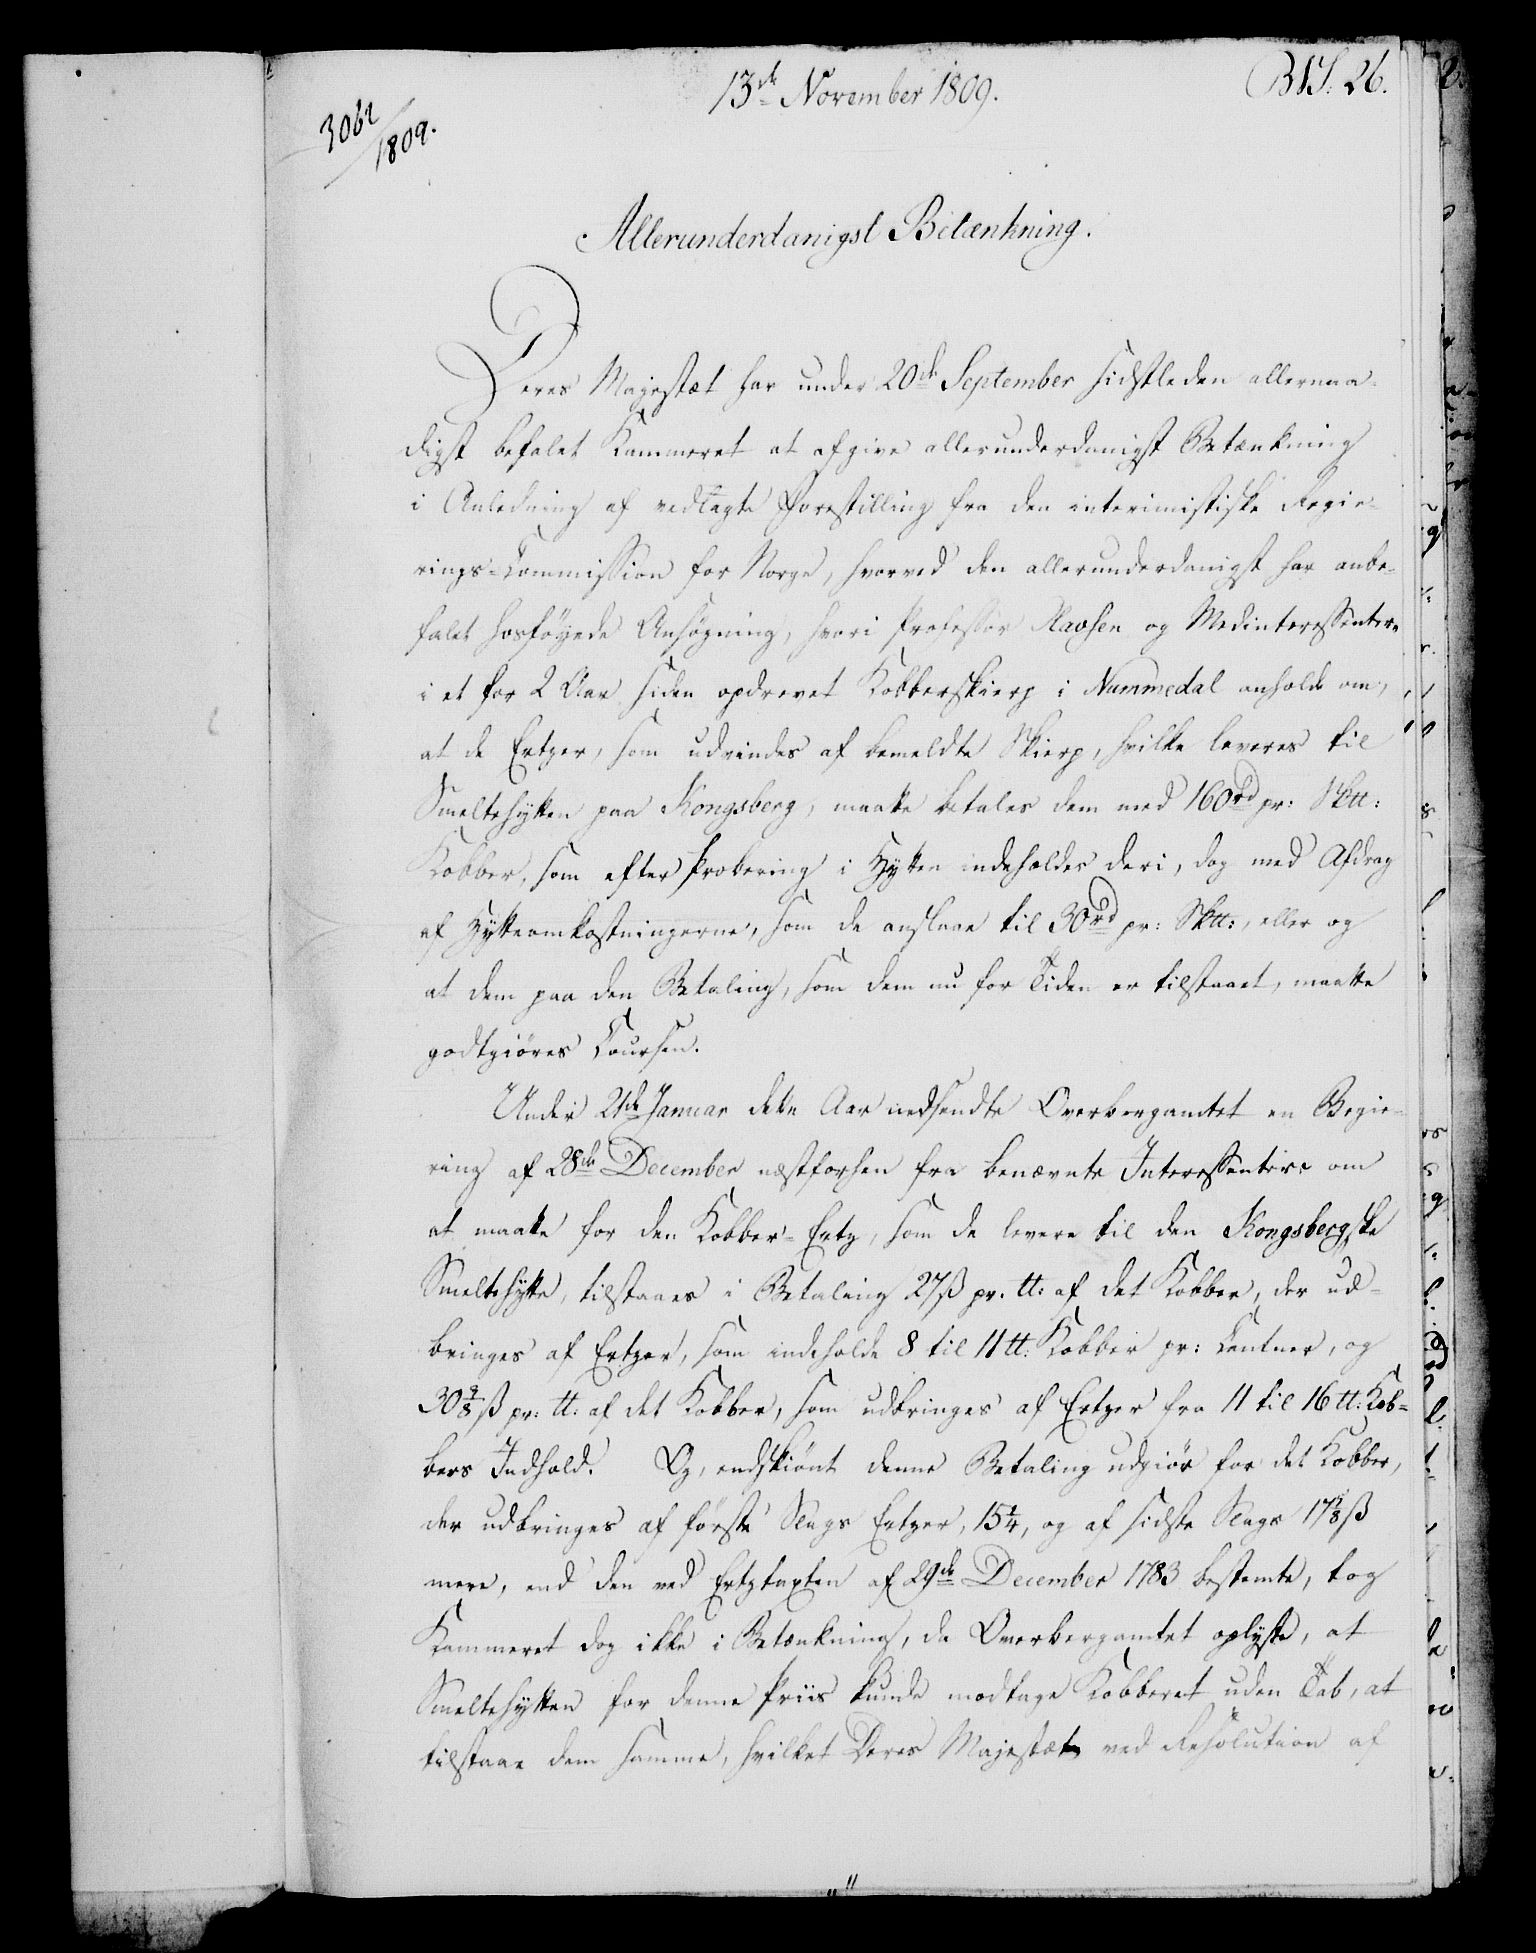 13de November 1809.
B 1 S: 26.
3062/1809.
Allerunderdanigst Betænkning.
Deres Majestæt har under 20de September sidstleden allernaa-
digst befalet Kammeret at afgive allerunderdanigst Betænkning
i Anledning af vedlagte Forestilling fra den interimistiske Regie-
rings-Commission for Norge, hvorved den allerunderdanigst har anbe-
falet hosføyede Ansøgning, hvori Professor Olavsen og Medinteressentere
i et for 2 Aar siden opdrevet Kobberskierp i Nummedal anholde om,
at de Ertzer, som udvindes af bemeldte Skierp, hvilke leveres til
Smeltehytten paa Kongsberg, maatte betales dem med 160 rd pr: Sktt:
Kobber, som efter Probering i Hytten indeholdes deri, dog med Afdrag
af Hytteomkostningerne, som de anslaae til 30 rd pr: Sktt:, eller og
at dem paa den Betaling, som dem nu for Tiden er tilstaaet, maatte
godtgiøres Coursen.
Under 21de Januar dette Aar nedsendte Overbergamtet en Begie-
ring af 28de December næstforhen fra benævnte Interessentere om
at maatte for den Kobber-Ertz, som de levere til den Kongsbergske
Smeltehytte, tilstaaes i Betaling 27 ß pr. tt: af det Kobber, der ud-
bringes af Ertzer, som indeholde 8 til 11 tt: Kobber pr: Centner, og
30 ß pr: tt: af det Kobber, som udbringes af Ertzer fra 11 til 16 tt: Kob-
bers Indhold. Og, endskiönt denne Betaling udgiör for det Kobber,
der udbringes af förste Slags Ertzer, 15¼, og af sidste Slags 17⅛ ß
mere, end den ved Ertztaxten af 29de December 1783 bestemte, tog
Kammeret dog ikke i Betænkning, da Overbergamtet oplyste, at
Smeltehytten for denne Priis kunde modtage Kobberet uden Tab, at
tilstaae dem samme, hvilket Deres Majestæt ved Resolution af